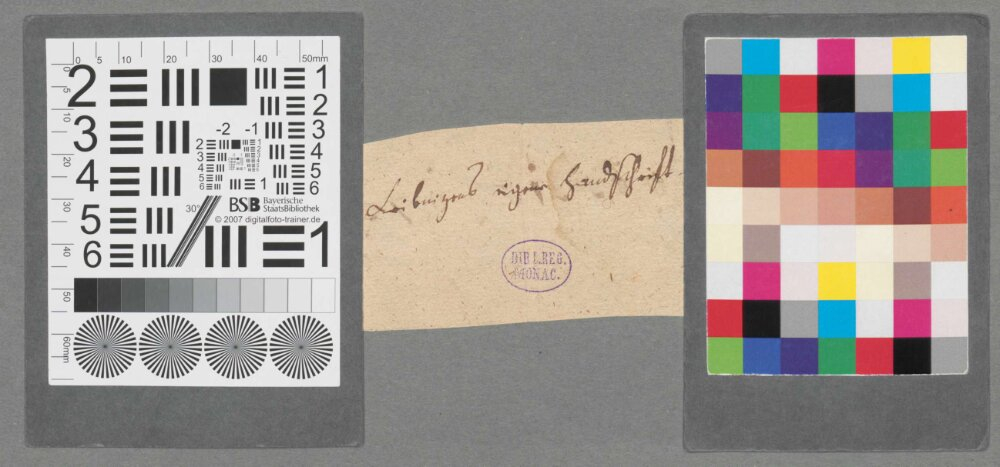 0 5 10 20 30 40 50mm
0 5 10 20 30 40 50 60mm
2 3 4 5 6
1 2 3 4 5 6
-2 -1
2 3 4 5 6
1
30°
BSB Bayerische
StaatsBibliothek
© 2007 digitalfoto-trainer.de
1
Leibnizens eigene Handschrift.
BIBL.REG.
MONAC.